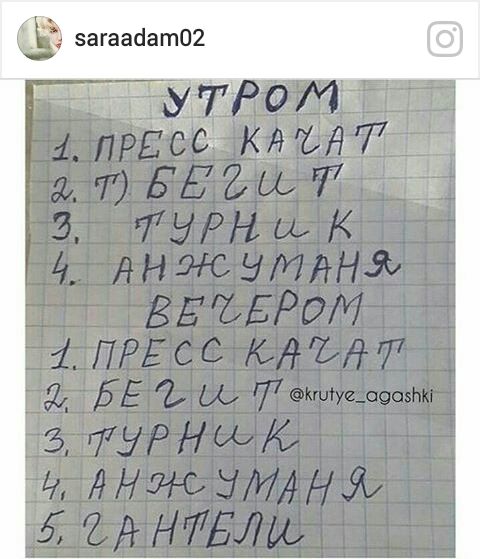 saraadam02
УТРОМ
1. ПРЕСС КАЧАТ
2. Т) БЕГИТ
3. ТУРНИК
4. АНЖУМАНЯ
ВЕЧЕРОМ
1. ПРЕСС КАЧАТ
2. БЕГИТ @krutye_agashki
3. ТУРНИК
4. АНЖУМАНЯ
5. ГАНТЕЛИ